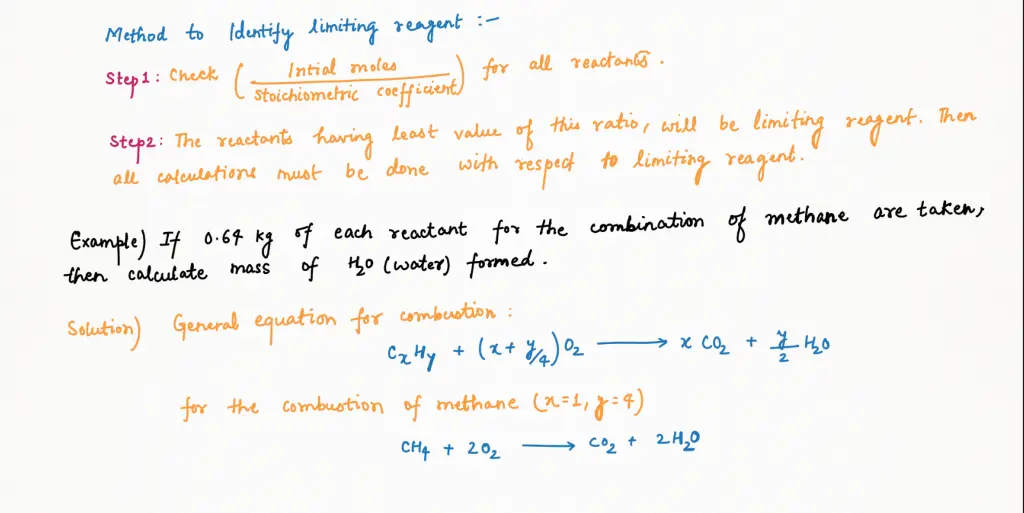 Method to Identify limiting reagent :-
Step1: Check (Intial moles / Stoichiometric coefficient) for all reactants.
Step2: The reactants having least value of this ratio, will be limiting reagent. Then
all calculations must be done with respect to limiting reagent.
Example) If 0.64 kg of each reactant for the combination of methane are taken,
then calculate mass of H₂O (water) formed.
Solution) General equation for combustion :
CxHy + (x + y/4) O₂ ⟶ x CO₂ + y/2 H₂O
for the combustion of methane (x=1, y=4)
CH₄ + 2O₂ ⟶ CO₂ + 2H₂O